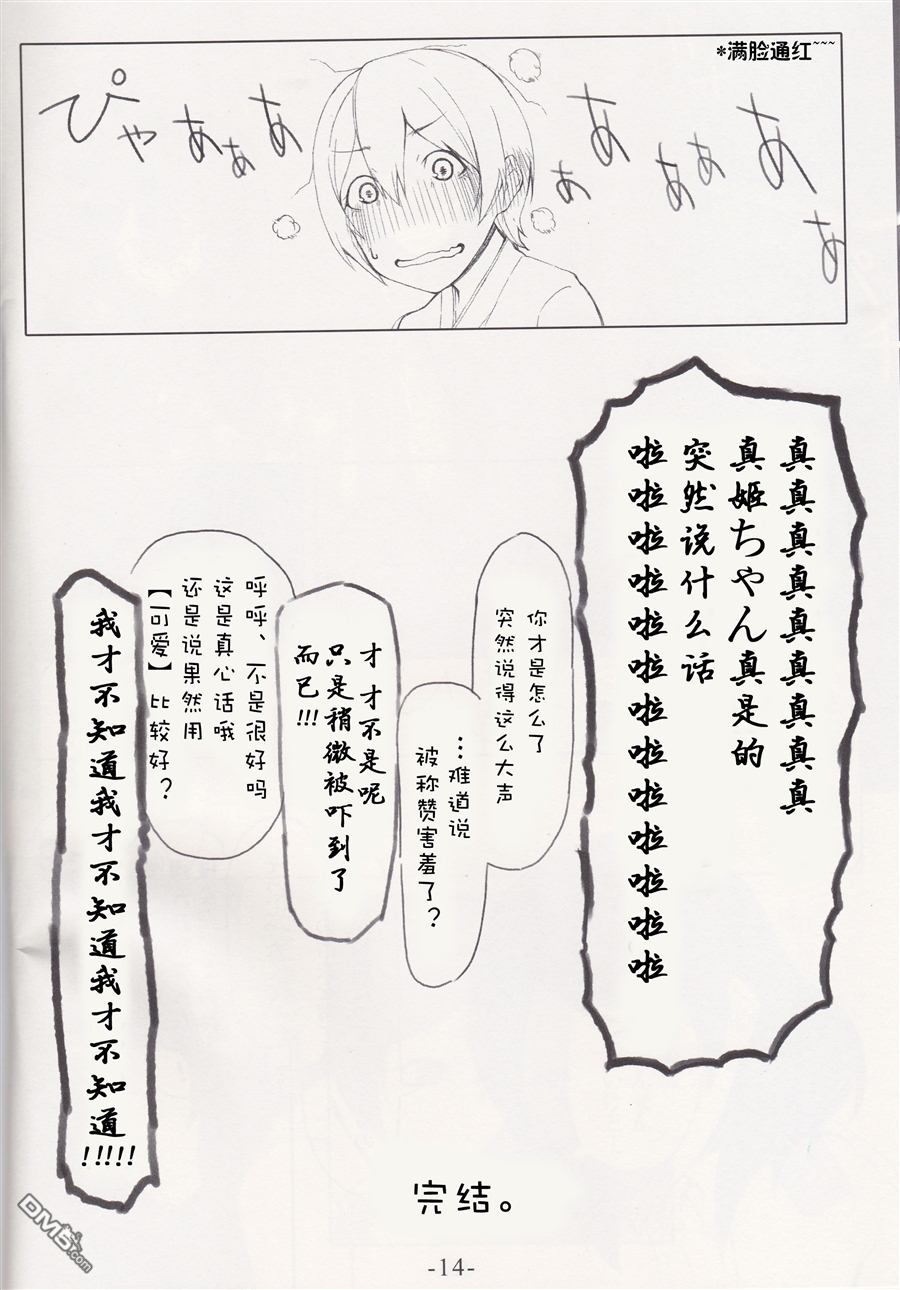 *满脸通红~~~
ぴゃあぁあ
ぁああぁあぁ
真真真真真真真真真
真姬ちゃん真是的
突然说什么话
啦啦啦啦啦啦啦啦啦啦啦啦啦
你才是怎么了
突然说得这么大声
…难道说
被称赞害羞了？
才 才不是呢
只是稍微被吓到了
而已!!!
呼呼、不是很好吗
这是真心话哦
还是说果然用
【可爱】比较好？
我才不知道我才不知道我才不知道!!!!!
完结。
-14-
DM5.com